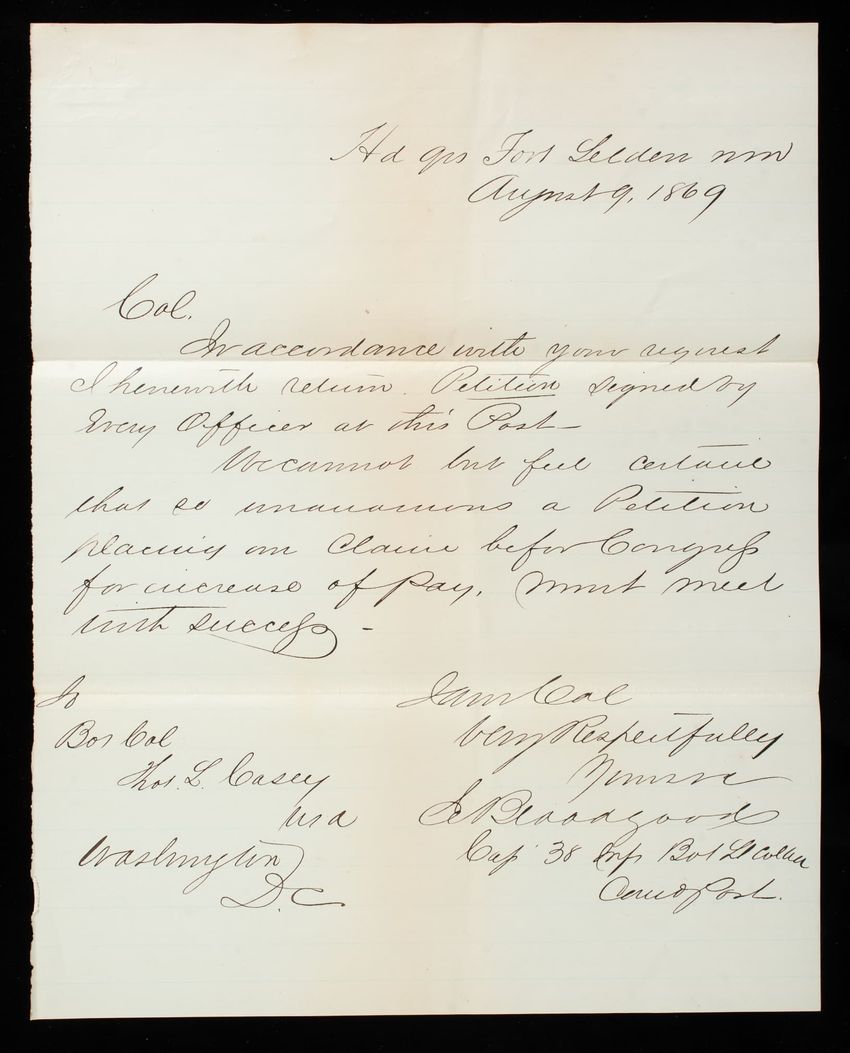 Hd qrs Fort Selden NM
August 9, 1869
Col.
In accordance with your request
I herewith return Petition signed by
Every Officer at this Post—
We cannot but feel certain
that so unanimous a Petition
placing our Claim before Congress
for increase of Pay, Must meet
with success—
To
Bvt Col
Thos. L. Casey
USA
Washington
D.C.
I am Col
Very Respectfully
Yours &c
E Bloodgood
Capt 38 Inf Bvt Lt Col USA
Comd Post.